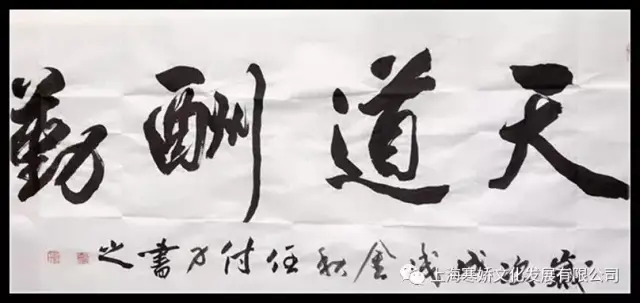 天道酬勤
歲次戊戌金秋任付才書之
上海寒娇文化发展有限公司